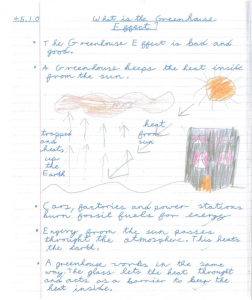 What is the Greenhouse
Effect
• The Greenhouse Effect is bad and
good.
• A Greenhouse keeps the heat inside
from the sun.
trapped
and
heats
up
the
Earth
heat
from
sun
• Cars, factories and power stations
burn fossil fuels for energy
• Energy from the sun passes
throught the atmosphere. This heats
the earth.
• A greenhouse works in the same
way. The glass lets the heat throught
and acts as a barrier to keep the
heat inside.